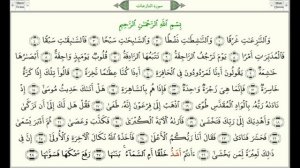 سورة النازعات
بِسْمِ ٱللَّهِ ٱلرَّحْمَٰنِ ٱلرَّحِيمِ
وَٱلنَّٰزِعَٰتِ غَرْقًا ۝ وَٱلنَّٰشِطَٰتِ نَشْطًا ۝ وَٱلسَّٰبِحَٰتِ سَبْحًا ۝ فَٱلسَّٰبِقَٰتِ سَبْقًا ۝
فَٱلْمُدَبِّرَٰتِ أَمْرًا ۝ يَوْمَ تَرْجُفُ ٱلرَّاجِفَةُ ۝ تَتْبَعُهَا ٱلرَّادِفَةُ ۝ قُلُوبٌ يَوْمَئِذٍ وَاجِفَةٌ ۝ أَبْصَٰرُهَا
خَٰشِعَةٌ ۝ يَقُولُونَ أَءِنَّا لَمَرْدُودُونَ فِى ٱلْحَافِرَةِ ۝ أَءِذَا كُنَّا عِظَٰمًا نَّخِرَةً ۝ قَالُوا۟ تِلْكَ إِذًا كَرَّةٌ
خَاسِرَةٌ ۝ فَإِنَّمَا هِىَ زَجْرَةٌ وَٰحِدَةٌ ۝ فَإِذَا هُم بِٱلسَّاهِرَةِ ۝ هَلْ أَتَىٰكَ حَدِيثُ مُوسَىٰٓ ۝ إِذْ
نَادَىٰهُ رَبُّهُۥ بِٱلْوَادِ ٱلْمُقَدَّسِ طُوًى ۝ ٱذْهَبْ إِلَىٰ فِرْعَوْنَ إِنَّهُۥ طَغَىٰ ۝ فَقُلْ هَل لَّكَ إِلَىٰٓ أَن تَزَكَّىٰ ۝
وَأَهْدِيَكَ إِلَىٰ رَبِّكَ فَتَخْشَىٰ ۝ فَأَرَىٰهُ ٱلْءَايَةَ ٱلْكُبْرَىٰ ۝ فَكَذَّبَ وَعَصَىٰ ۝ ثُمَّ أَدْبَرَ يَسْعَىٰ ۝
فَحَشَرَ فَنَادَىٰ ۝ فَقَالَ أَنَا۠ رَبُّكُمُ ٱلْأَعْلَىٰ ۝ فَأَخَذَهُ ٱللَّهُ نَكَالَ ٱلْءَاخِرَةِ وَٱلْأُولَىٰٓ ۝ إِنَّ فِى
ذَٰلِكَ لَعِبْرَةً لِّمَن يَخْشَىٰٓ ۝ ءَأَنتُمْ أَشَدُّ خَلْقًا أَمِ ٱلسَّمَآءُ ۚ بَنَىٰهَا ۝ رَفَعَ سَمْكَهَا فَسَوَّىٰهَا ۝